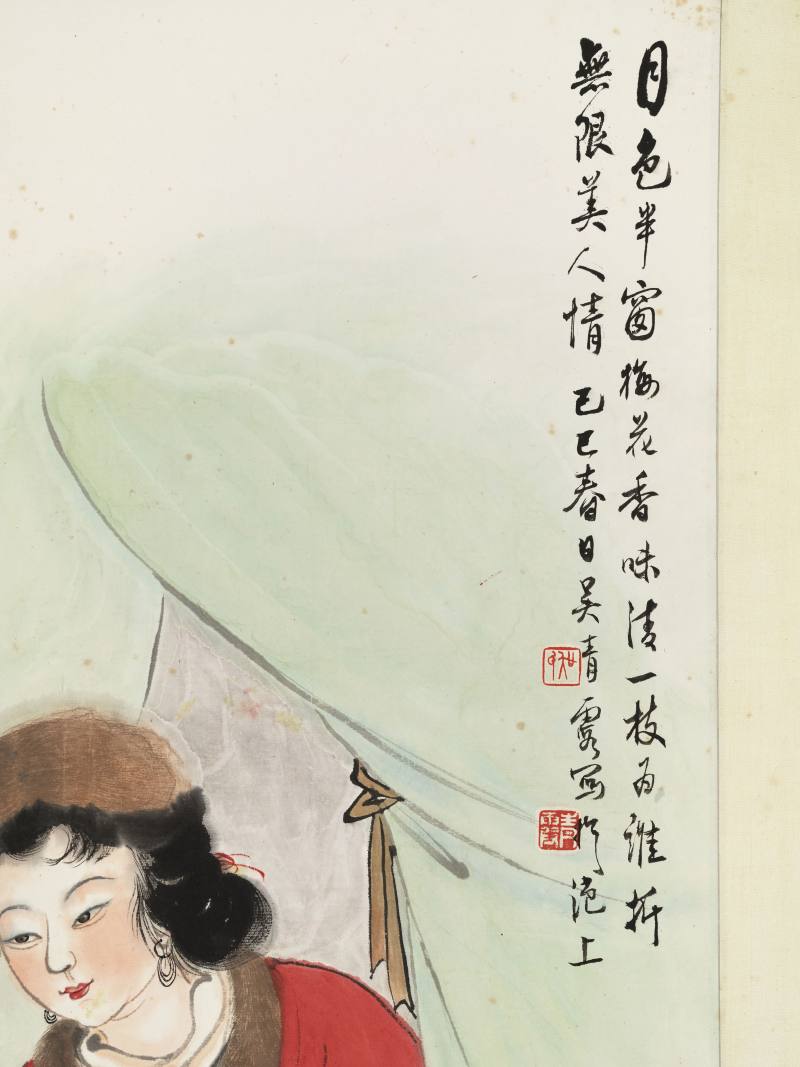 月色半窗梅花香味清一枝为谁折
無限美人情 己巳春日吴青霞写於沪上
青霞